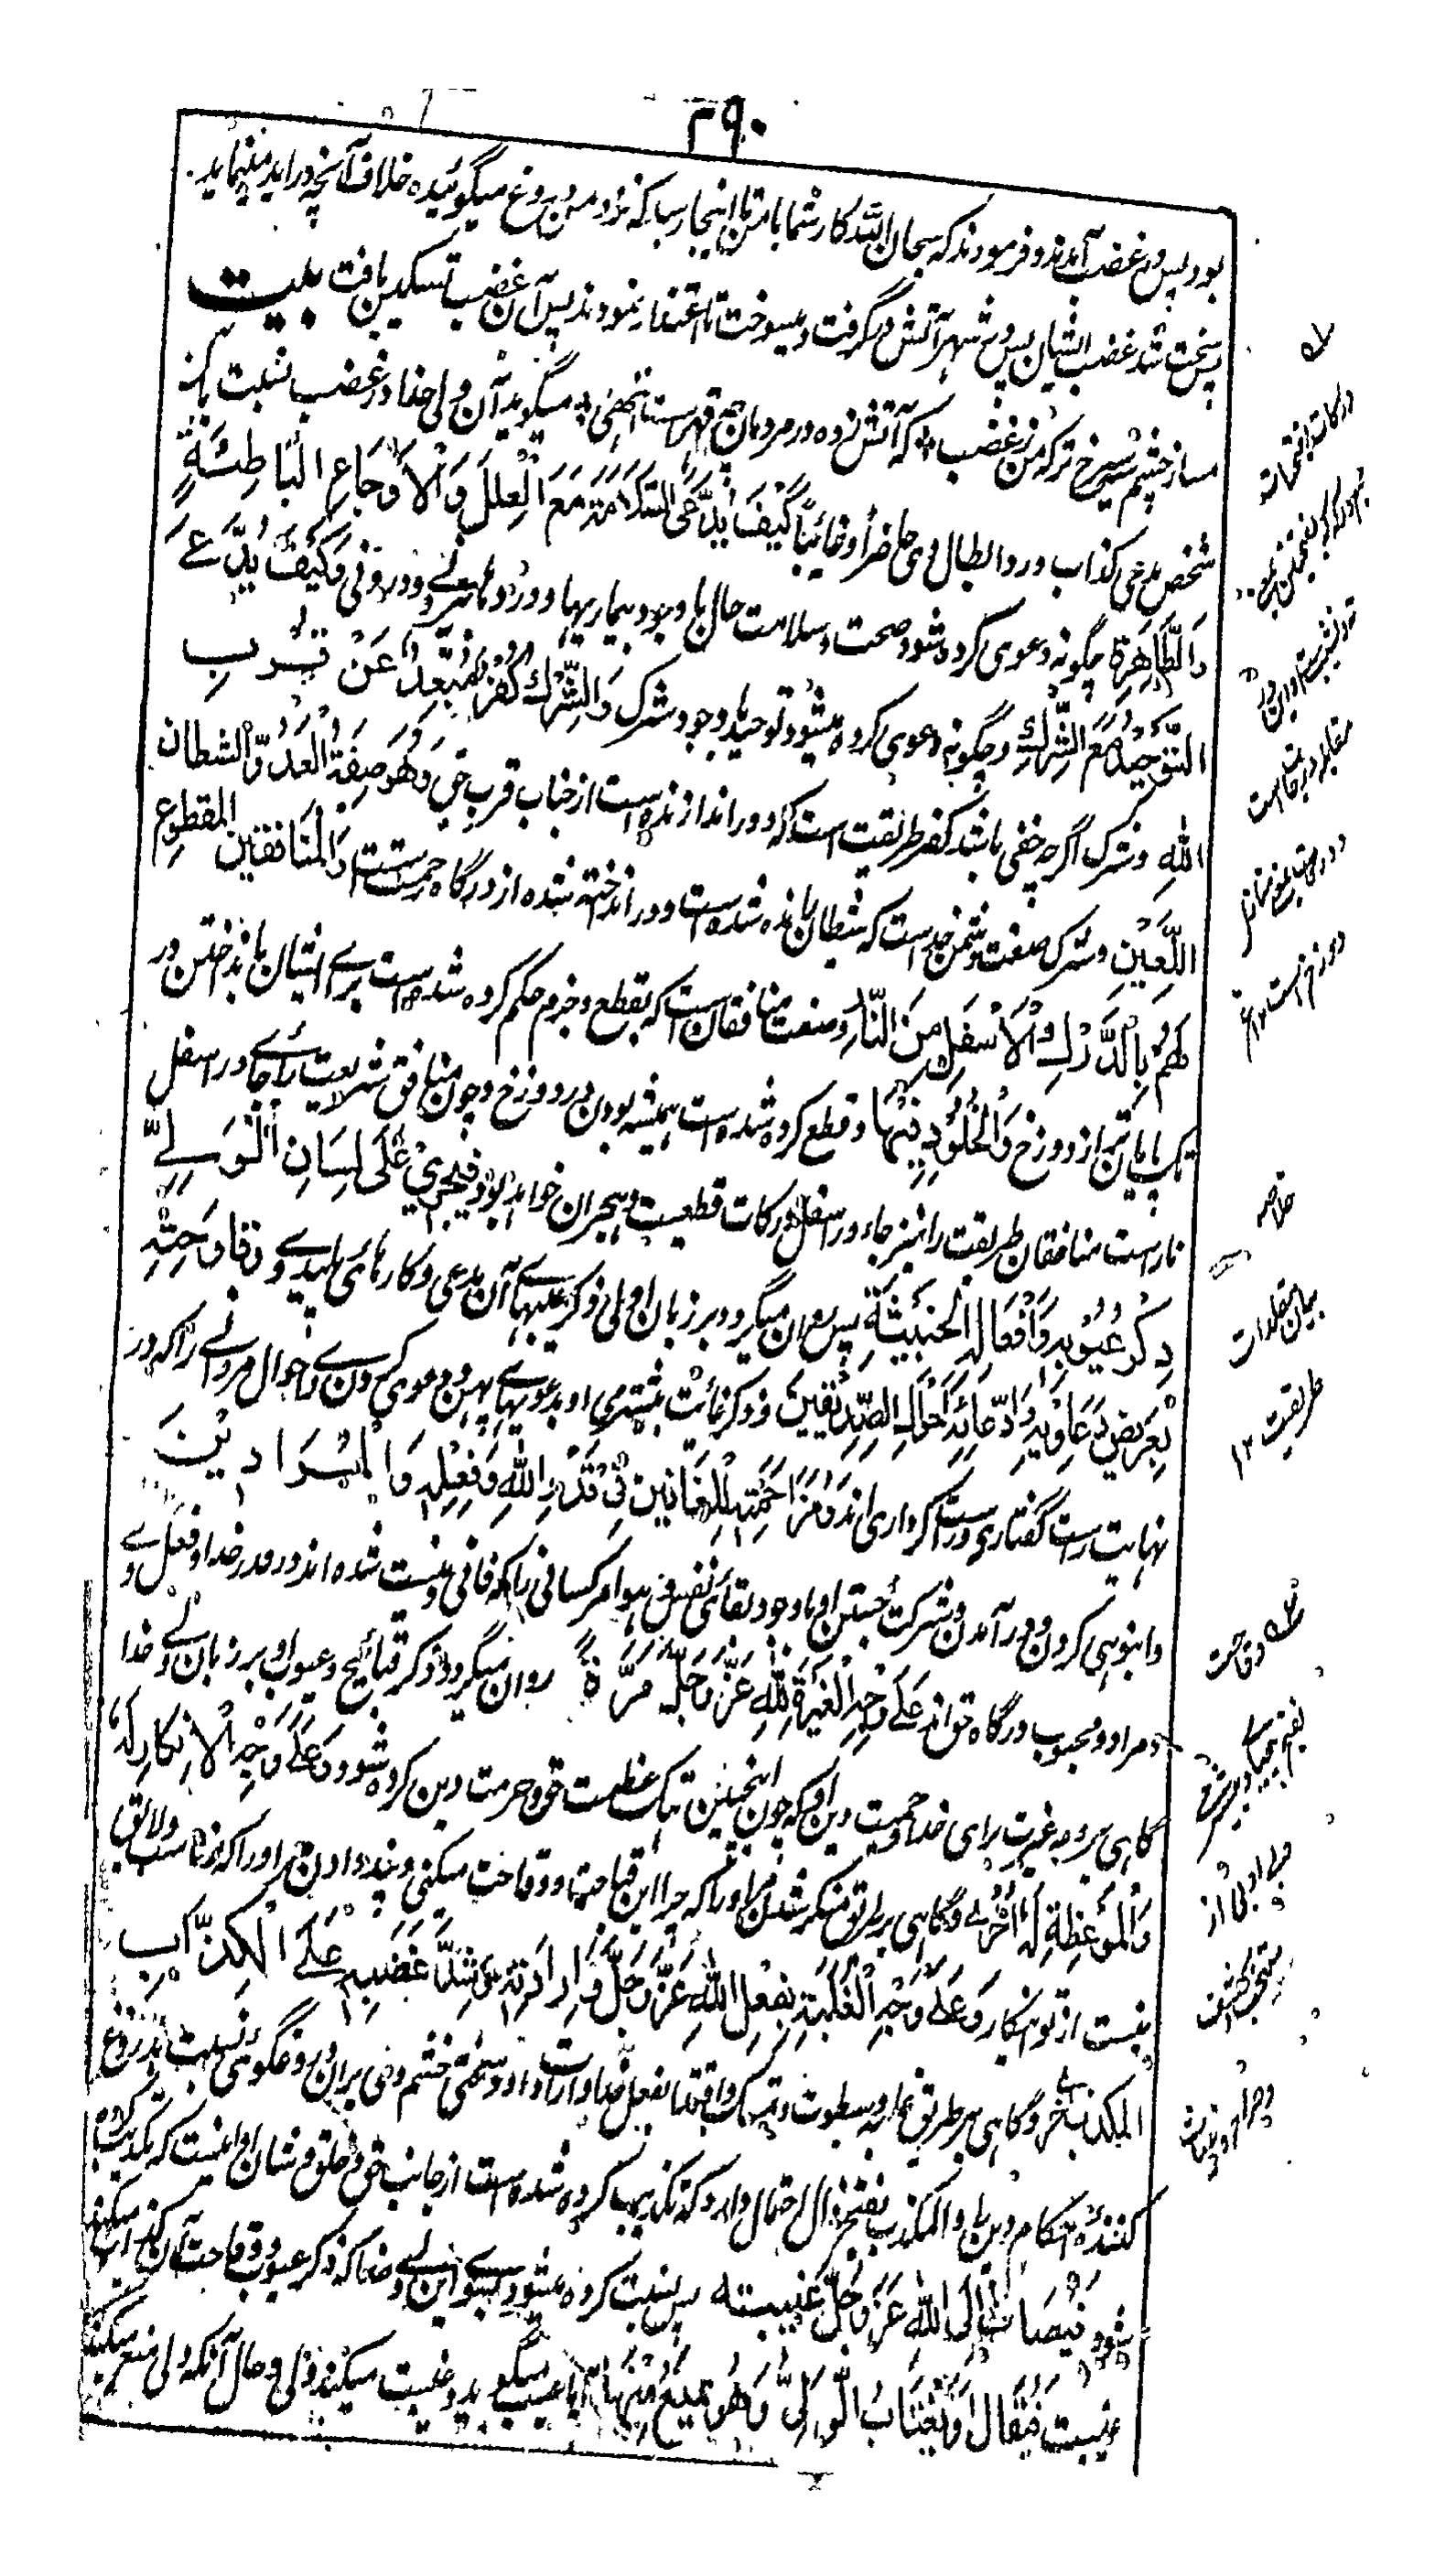 ۲۹۰
بود پس در غضب آمدند و فرمودند که سبحان الله کار شما با من تا اینجا رسیا که نزد من دروغ میگوئید و خلاف آنچه دراید مینماید
پس سخت شد غضب ایشان پس در شهر آتش در گرفت و میسوخت تا استغفار نمودند پس آن غضب تسکین یافت بیت
مساز چشم سرخ ترک من ز غضب * که آتش زده در مردمان چه قهرست این * میگوید آن ولی خدا در غضب نسبت بآن
شخص مدعی کذاب و رد ابطال وی حاضرا و غائبا كَيْفَ يُدَّعَى السَّلَامَةُ مَعَ الْعِلَلِ وَالْأَوْجَاعِ الْبَاطِنَةِ
وَالظَّاهِرَةِ چگونه دعوی کرده شود صحت و سلامت حال با وجود بیماریها و دردهای بیرونی و درونی وَكَيْفَ يُدَّعَى
التَّوْحِيدُ مَعَ الشِّرْكِ و چگونه دعوی کرده میشود توحید با وجود شرک وَالشِّرْكُ كُفْرٌ مُبْعِدٌ عَنْ قُرْبِ
اللهِ و شرک اگر چه خفی باشد کفر طریقت است که دور اندازنده است از جناب قرب حق وَهُوَ صِفَةُ الْعَدُوِّ الشَّيْطَانِ
اللَّعِينِ و شرک صفت دشمن خداست که شیطان رانده شده است و دور انداخته شده از درگاه رحمت ست وَالْمُنَافِقِينَ الْمَقْطُوعِ
لَهُمْ بِالدَّرْكِ الْأَسْفَلِ مِنَ النَّارِ و صفت منافقان ست که بقطع و جزم حکم کرده شده است برای ایشان بانداختن در
تک پایان تر از دوزخ وَالْخُلُودِ فِيهَا و قطع کرده شده است همیشه بودن در دوزخ و چون منافق شریعت را جای در اسفل
نارست منافقان طریقت را نیز جاء در اسفل درکات قطعیت و هجران خواهد بود فَيَجْرِي عَلَى لِسَانِ الْوَلِيِّ
ذِكْرُ عُيُوبِهِ وَأَفْعَالِهِ الْخَبِيثَةِ پس روان میگردد بر زبان ولی ذکر عیبهای آن مدعی و کارهای پلید وی وَوَقَاحَتِهِ
بِعَرِيضِ دَعَاوِيهِ وَادِّعَائِهِ أَحْوَالَ الصِّدِّيقِينَ و ذکر غائت بیشرمی او بدعویهای پهن و دعوی کردن وی احوال مردانی را که در
نهایت راست گفتاری و راست کرداری اند وَمُزَاحَمَتِهِ لِلْفَانِينَ فِي قَدَرِ اللهِ وَفِعْلِهِ وَالْمُرَادِينَ
و انبوهی کردن و در آمدن و شرکت جستن او با وجود بقای نفس و هوا مر کسانی را که فانی و نیست شده اند در قدر خدا و فعل وی و
مراد و محبوب درگاه تواند عَلَى وَجْهِ الْغَيْرَةِ لِلّٰهِ عَزَّ وَجَلَّ مَرَّةً روان میگردد ذکر قبائح و عیوب او بر زبان ولی خدا
گاهی بر وجه غیرت برای خدا و حمیت دین او که چون اینچنین هتک عظمت حق و حرمت دین کرده شود وَعَلَى وَجْهِ الْإِنْكَارِ لَهُ
وَالْمَوْعِظَةِ لَهُ أُخْرَى و گاهی بر طریق منکر شدن مر او را که چرا این قباحت و وقاحت میکنی و پند دادن مر او را که مناسب و لائق
نیست از تو انکار وَعَلَى وَجْهِ الْغَلَبَةِ بِفِعْلِ اللهِ عَزَّ وَجَلَّ وَإِرَادَتِهِ وَشِدَّةِ غَضَبِهِ عَلَى الْكَذَّابِ
الْمُكَذِّبِ أُخْرَى و گاهی بر طریق غلبه و سطوت و اقتدا بفعل خدا و ارادت او و سختی خشم وی بران دروغگوی نسبت بدروغ
کننده احکام دین را و المکذب بفتح ذال احتمال دارد که تکذیب کرده شده است از جانب حق و خلق و شان او اینست که تکذیب کرده
شود فَيُضَافُ إِلَى اللهِ عَزَّ وَجَلَّ غِيبَتُهُ پس نسبت کرده میشود بسوی این ولی خدا که ذکر عیوب و وقاحت آن کذاب میکند
غیبت فَيُقَالُ أَيَغْتَابُ الْوَلِيُّ وَهُوَ يَمْنَعُ مِنْهَا آیا عیب میگوید و غیبت میکند ولی و حال آنکه ولی منع میکند
خلاصه
بیان مقلدات
طریقت ۱۲
وقاحت